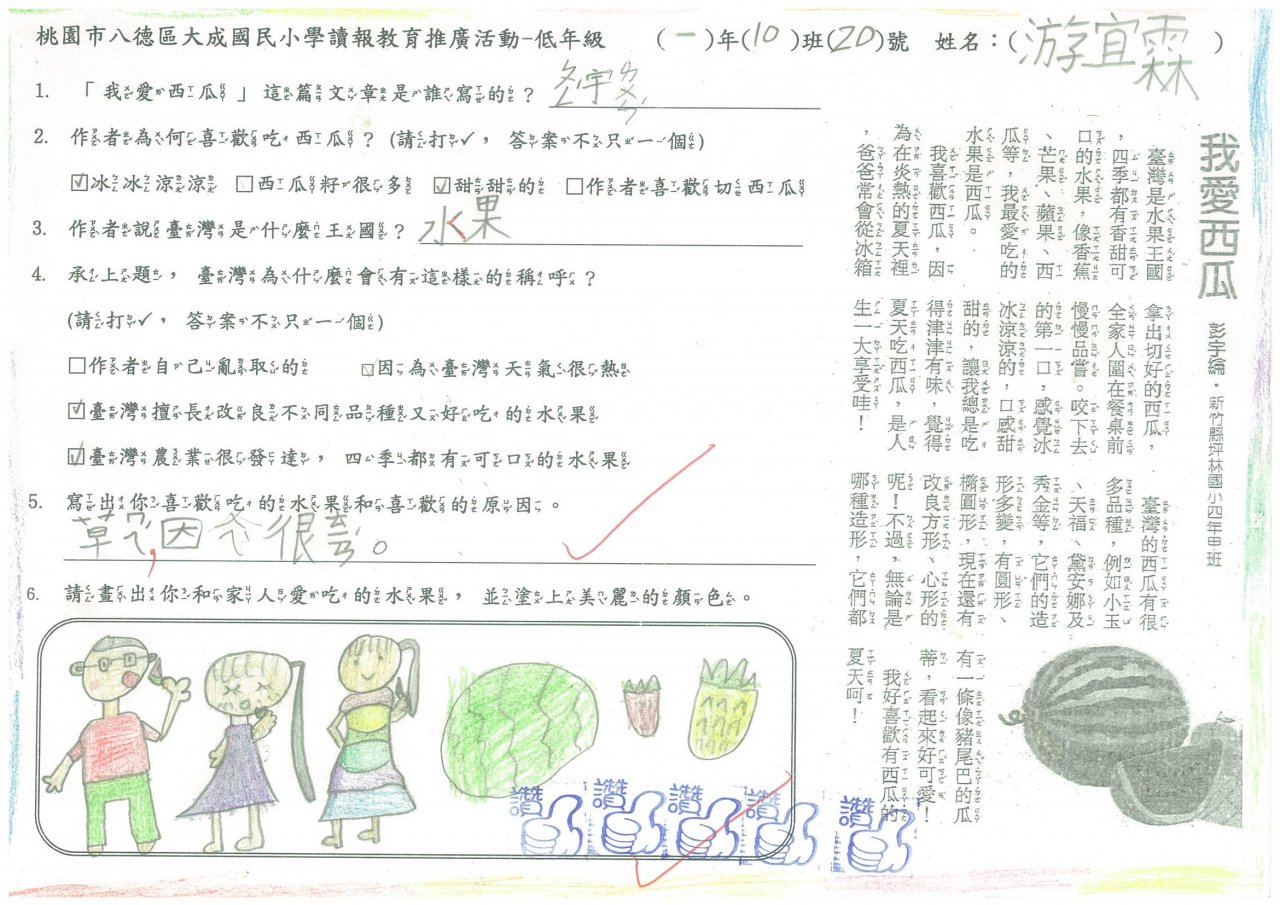 桃園市八德區大成國民小學讀報教育推廣活動-低年級 (一)年(10)班(20)號 姓名:(游宜霖)
1. 「我愛西瓜」這篇文章是誰寫的? ㄆㄥˊ宇ㄌㄨㄣˊ
2. 作者為何喜歡吃西瓜?(請打✓,答案不只一個)
☑冰冰涼涼 □西瓜籽很多 ☑甜甜的 □作者喜歡切西瓜
3. 作者說臺灣是什麼王國? 水果
4. 承上題,臺灣為什麼會有這樣的稱呼?
(請打✓,答案不只一個)
□作者自己亂取的 ☑因為臺灣天氣很熱
☑臺灣擅長改良不同品種又好吃的水果
☑臺灣農業很發達,四季都有可口的水果
5. 寫出你喜歡吃的水果和喜歡的原因。
草ㄇㄟˊ,因ㄨㄟˋ很
6. 請畫出你和家人愛吃的水果,並塗上美麗的顏色。
讚 讚 讚 讚 讚
我愛西瓜
彭宇綸‧新竹縣坪林國小四年甲班
臺灣是水果王國
,四季都有香甜可
口的水果,像香蕉
、芒果、蘋果、西
瓜等,我最愛吃的
水果是西瓜。
我喜歡西瓜,因
為在炎熱的夏天裡
,爸爸常會從冰箱
拿出切好的西瓜,
全家人圍在餐桌前
慢慢品嘗。咬下去
的第一口,感覺冰
冰涼涼的,口感甜
甜的,讓我總是吃
得津津有味,覺得
夏天吃西瓜,是人
生一大享受哇!
臺灣的西瓜有很
多品種,例如小玉
、天福、黛安娜及
秀金等,它們的造
形多變,有圓形、
橢圓形,現在還有
改良方形、心形的
呢!不過,無論是
哪種造形,它們都
有一條像豬尾巴的瓜
蒂,看起來好可愛!
我好喜歡有西瓜的
夏天呵!